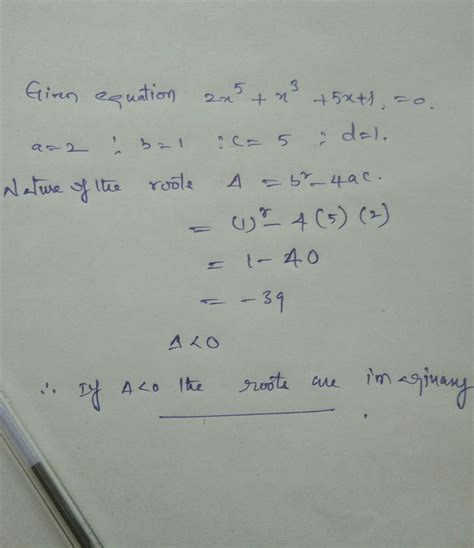 Given equation 2x⁵ + x³ + 5x+1 = 0.
a=2 ; b=1 ; c= 5 ; d=1.
Nature of the roots Δ = b² - 4ac.
= (1)² - 4(5)(2)
= 1 - 40
= -39
Δ<0
∴ If Δ<0 the roots are imaginary.